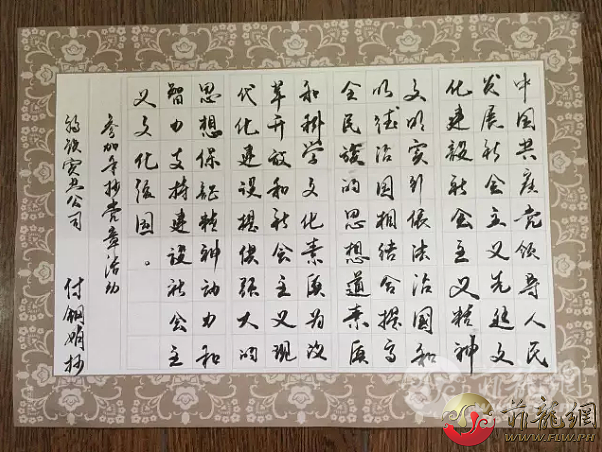 中国共产党领导人民
发展社会主义先进文
化建设社会主义精神
文明实行依法治国和
以德治国相结合提高
全民族的思想道素质
和科学文化素质为改
革开放和社会主义现
代化建设提供强大的
思想保证精神动力和
智力支持建设社会主
义文化强国。
参加手抄党章活动
实业公司 付娟抄
菲龍網
WWW.FLW.PH